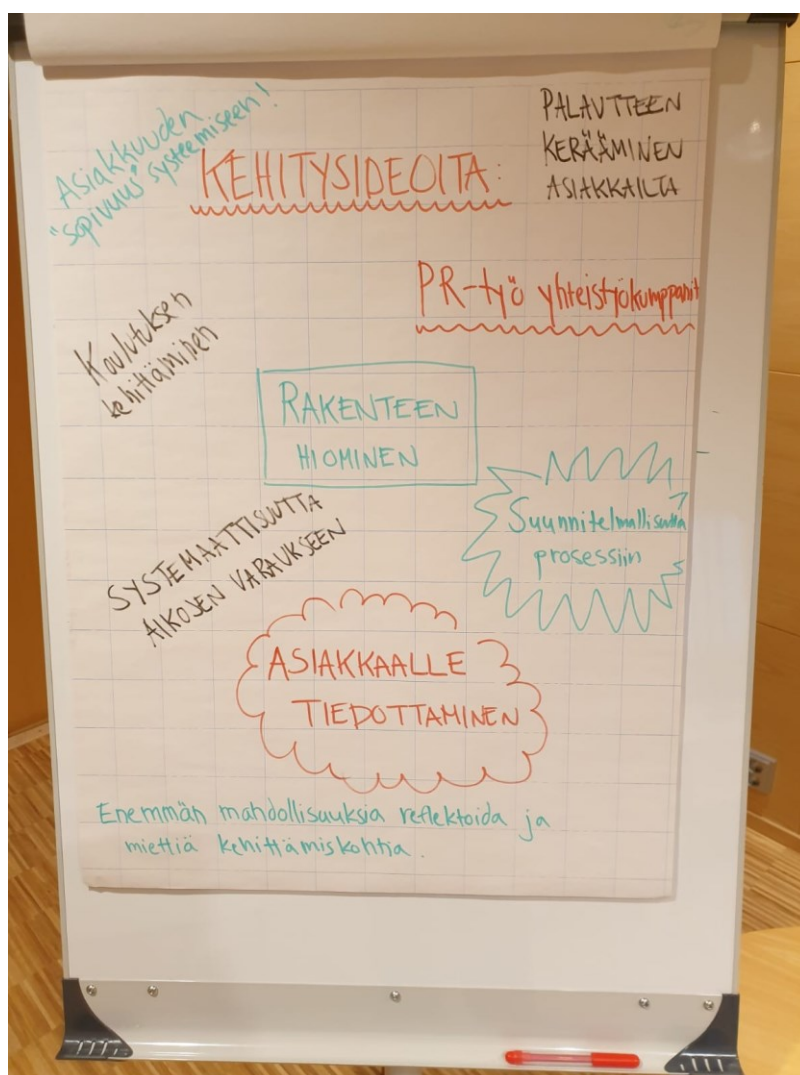 Asiakkuuden
"sopivuus" systeemiseen!
KEHITYSIDEOITA:
PALAUTTEEN
KERÄÄMINEN
ASIAKKAILTA
PR-työ yhteistyökumppanit
Koulutuksen
kehittäminen
RAKENTEEN
HIOMINEN
Suunnitelmallisuutta
prosessiin
SYSTEMAATTISUUTTA
AIKOJEN VARAUKSEEN
ASIAKKAALLE
TIEDOTTAMINEN
Enemmän mahdollisuuksia reflektoida ja
miettiä kehittämiskohtia.